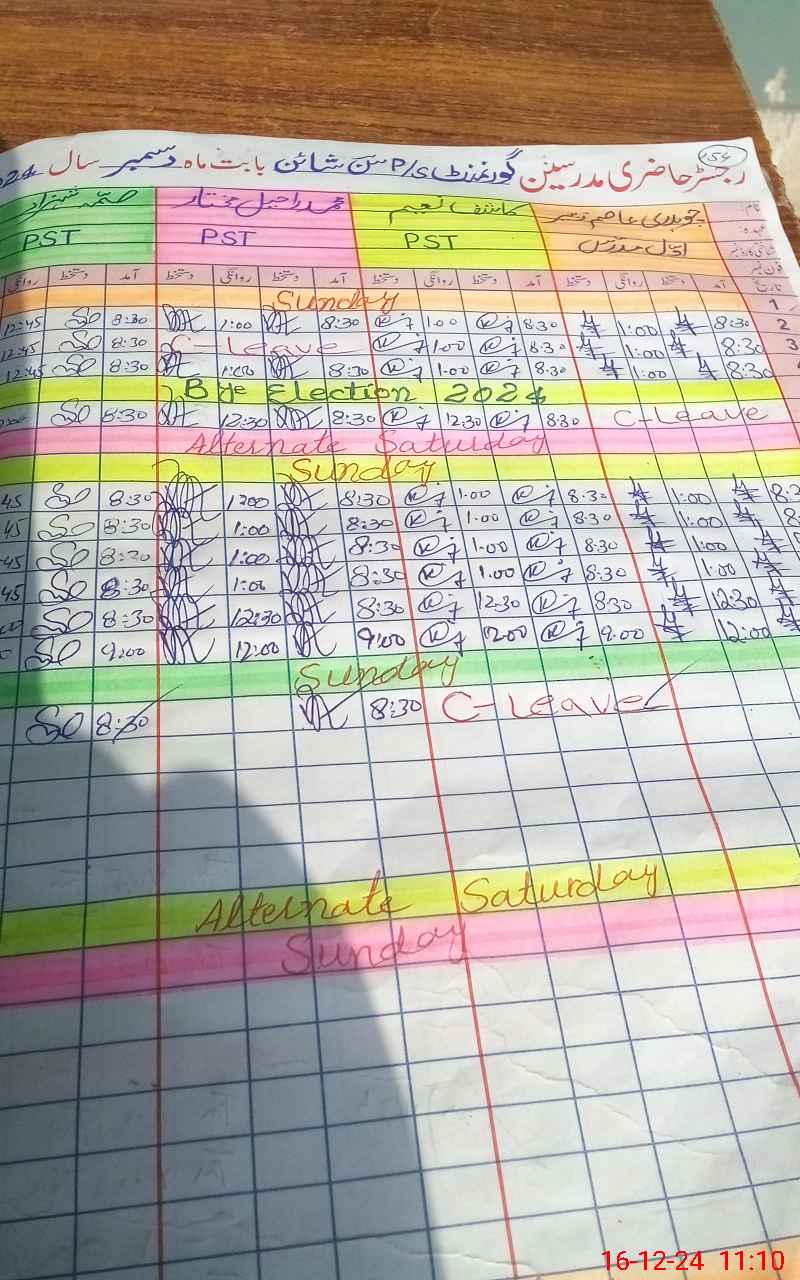 154
رجسٹر حاضری مدرسین گورنمنٹ P/S سن شائن بابت ماہ دسمبر سال
نام چوہدری عاصم کاشف نعیم محمد راحیل مختار شہزاد
عہدہ اول مدرس PST PST PST
تاریخ آمد دستخط روانگی دستخط آمد دستخط روانگی دستخط آمد دستخط روانگی دستخط آمد دستخط روانگی
1 Sunday
2 8:30 1:00 8:30 1:00 8:30 1:00 8:30 12:45
3 8:30 1:00 8:30 1:00 C-Leave 8:30 12:45
8:30 1:00 8:30 1:00 8:30 1:00 8:30 12:45
Bye Election 2024
C-Leave 8:30 12:30 8:30 12:30 8:30
Alternate Saturday
Sunday
1:00 8:30 1:00 8:30 1:00 8:30 45
1:00 8:30 1:00 8:30 1:00 8:30 45
1:00 8:30 1:00 8:30 1:00 8:30 45
1:00 8:30 1:00 8:30 1:00 8:30 45
12:30 8:30 12:30 8:30 12:30 8:30
12:00 9:00 12:00 9:00 12:00 9:00
Sunday
C-Leave 8:30 8:30
Alternate Saturday
Sunday
16-12-24 11:10